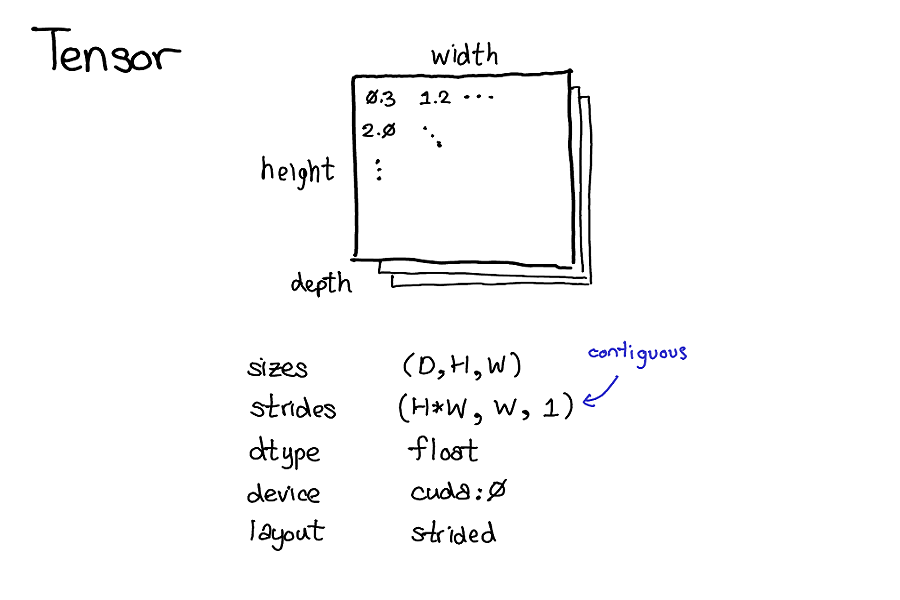 Tensor
width
0.3 1.2 ...
2.0 ⋱
⋮
height
depth
sizes (D,H,W)
contiguous
strides (H*W, W, 1)
dtype float
device cuda:0
layout strided